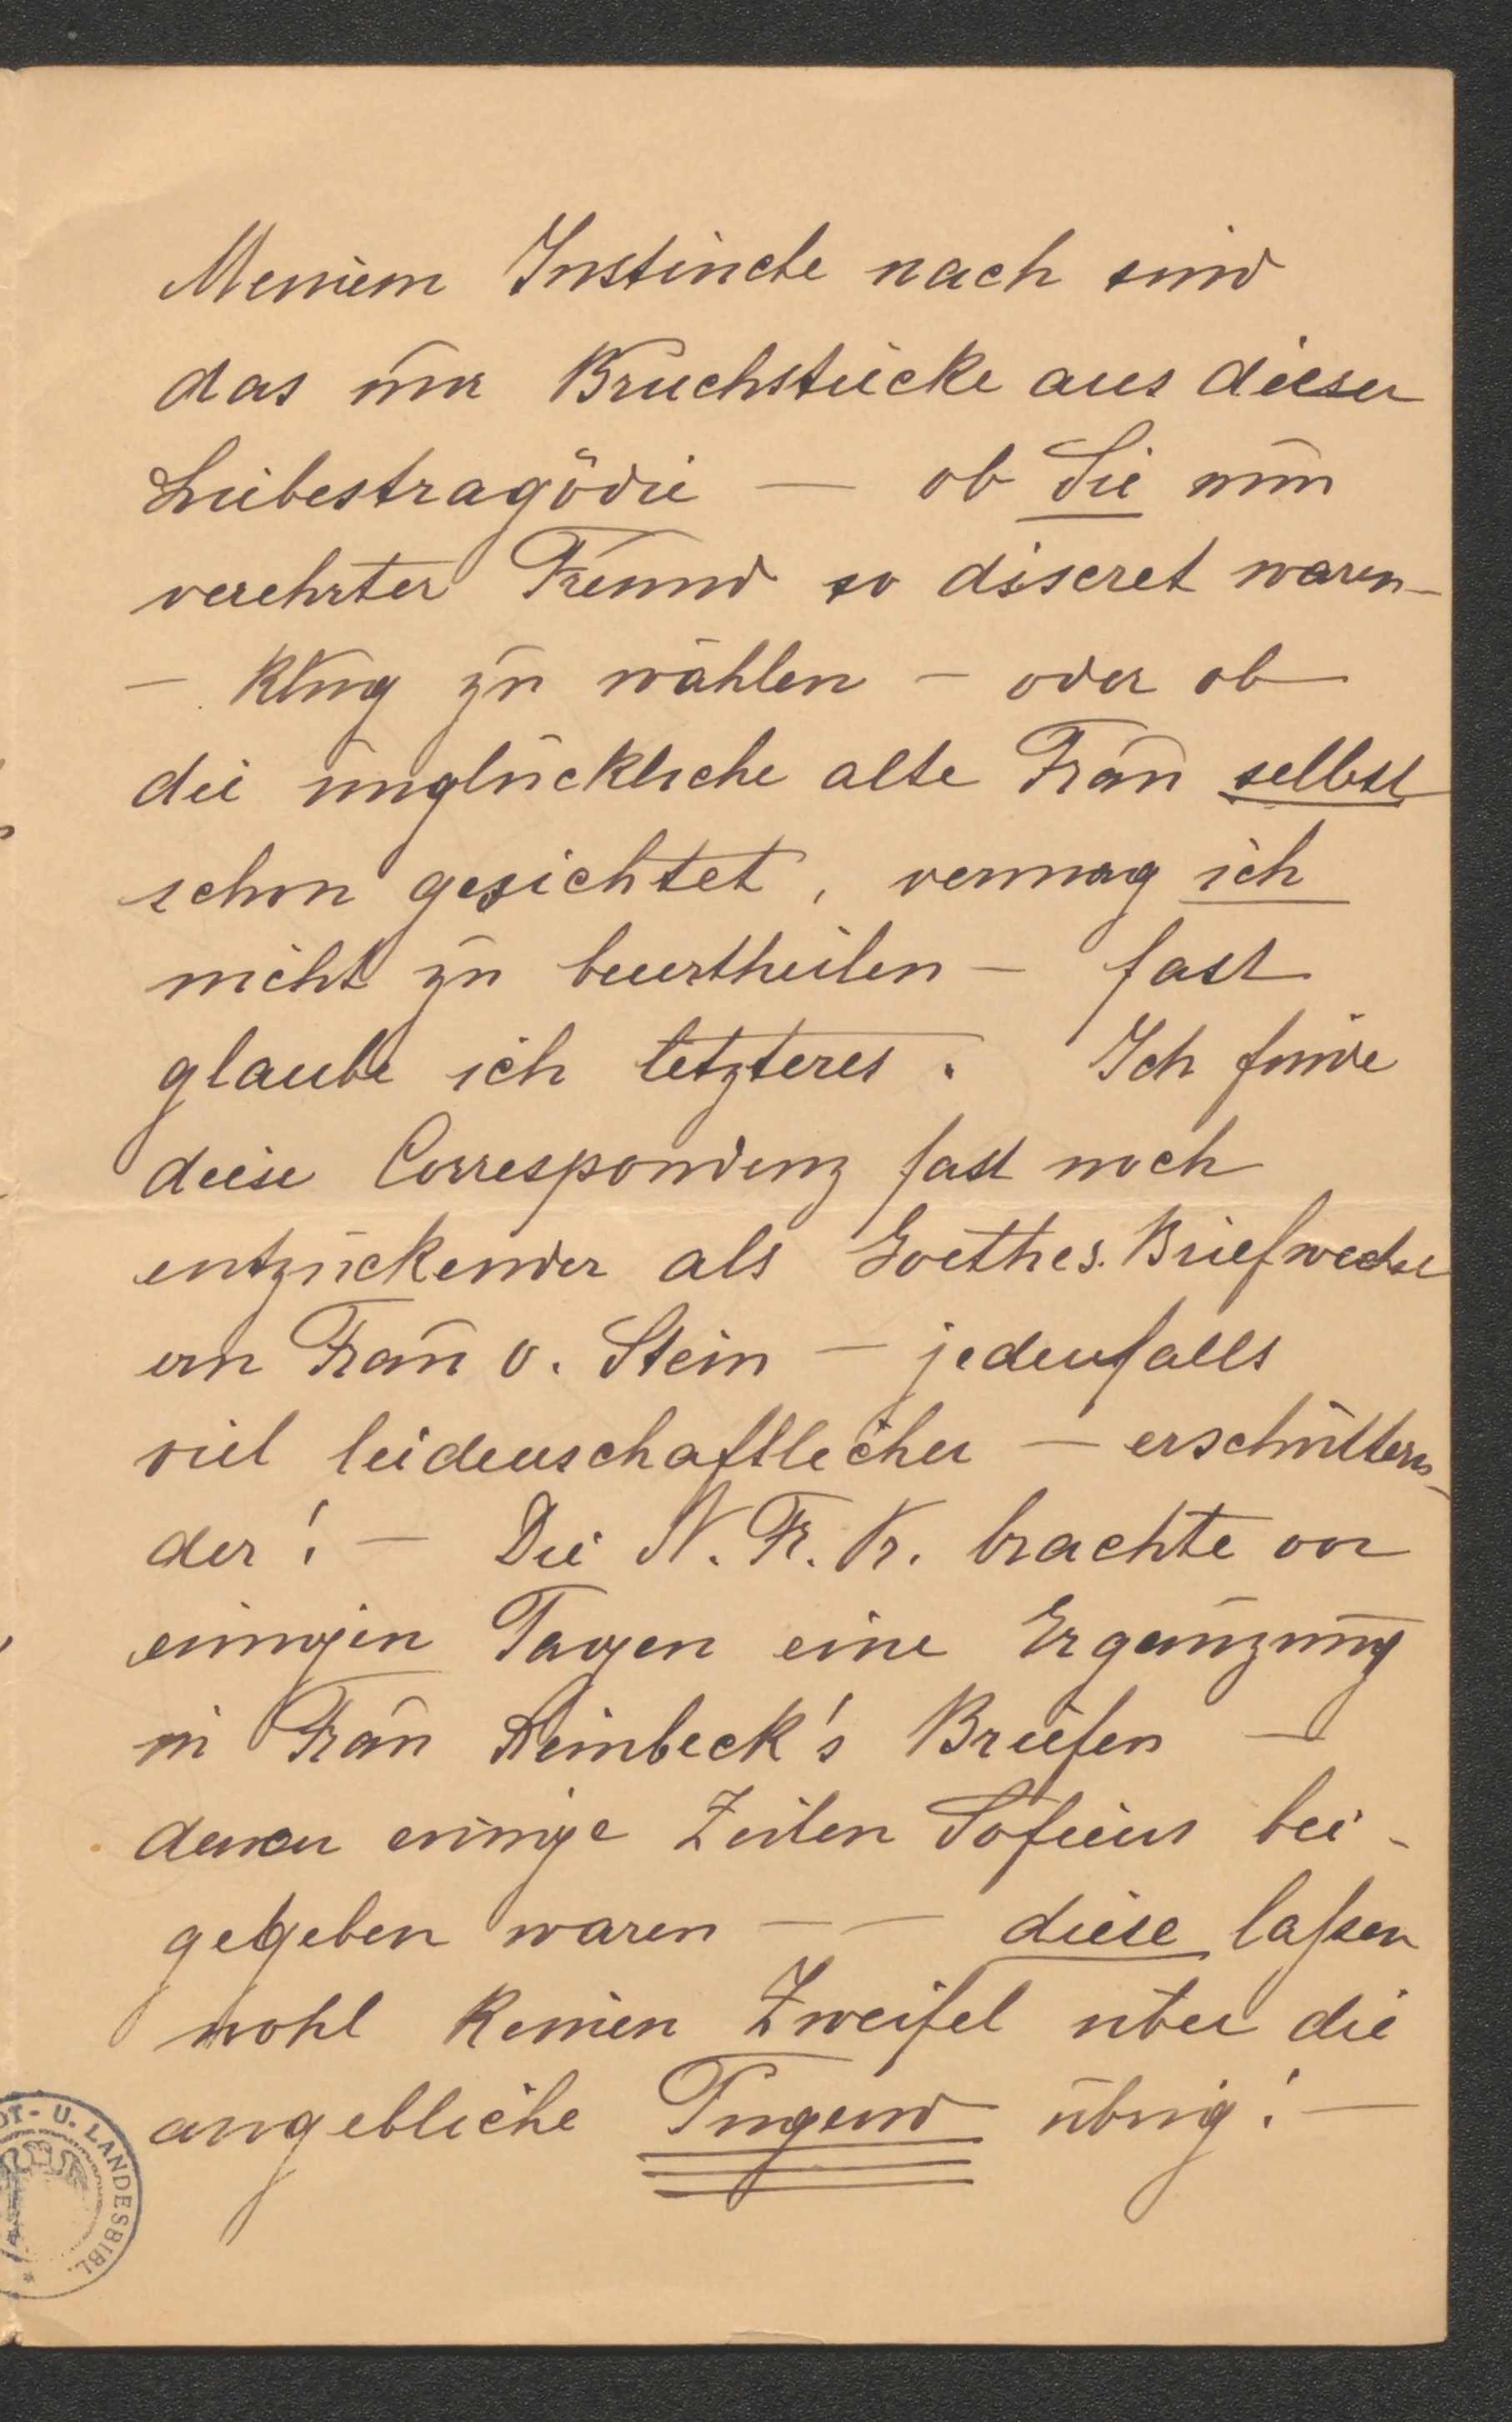 Meinem Instincte nach sind
das nur Bruchstücke aus dieser
Liebestragödie — ob Sie nun
verehrter Freund so discret waren –
– klug zu wählen – oder ob
die unglückliche alte Frau selbst
schon gesichtet, vermag ich
nicht zu beurtheilen – fast
glaube ich letzteres. Ich finde
diese Correspondenz fast noch
entzückender als Goethes Briefwechsel
an Frau v. Stein – jedenfalls
viel leidenschaftlicher – erschüttern-
der! – Die N. Fr. Pr. brachte vor
einigen Tagen eine Ergänzung
in Frau Reinbeck's Briefen —
denen einige Zeilen Sofiens bei-
gegeben waren — — diese laßen
wohl keinen Zweifel über die
angebliche Tugend übrig! —
DT- U. LANDESBIBL. *